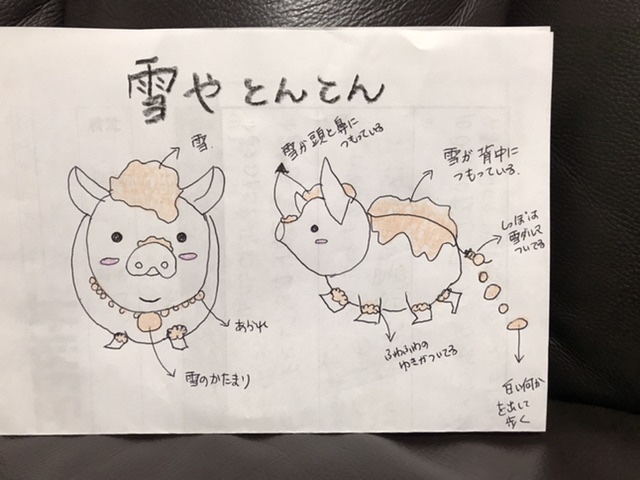 雪やとんとん
雪
雪が頭と鼻に
つもっている
雪が背中に
つもっている.
しっぽは
雪ダルマ
ついてる
あられ
雪のかたまり
ふわふわの
ゆきがついてる
白い何か
を出して
歩く